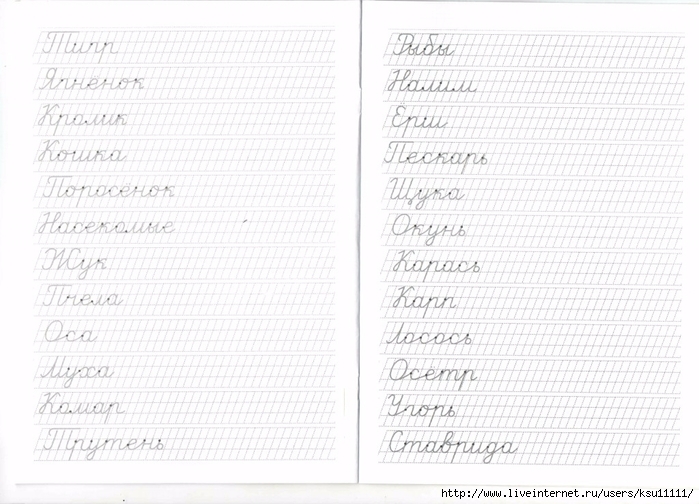 Тигр
Ягнёнок
Кролик
Кошка
Поросёнок
Насекомые
Жук
Пчела
Оса
Муха
Комар
Трутень
Рыбы
Налим
Ёрш
Пескарь
Щука
Окунь
Карась
Карп
Лосось
Осётр
Угорь
Ставрида
http://www.liveinternet.ru/users/ksu11111/